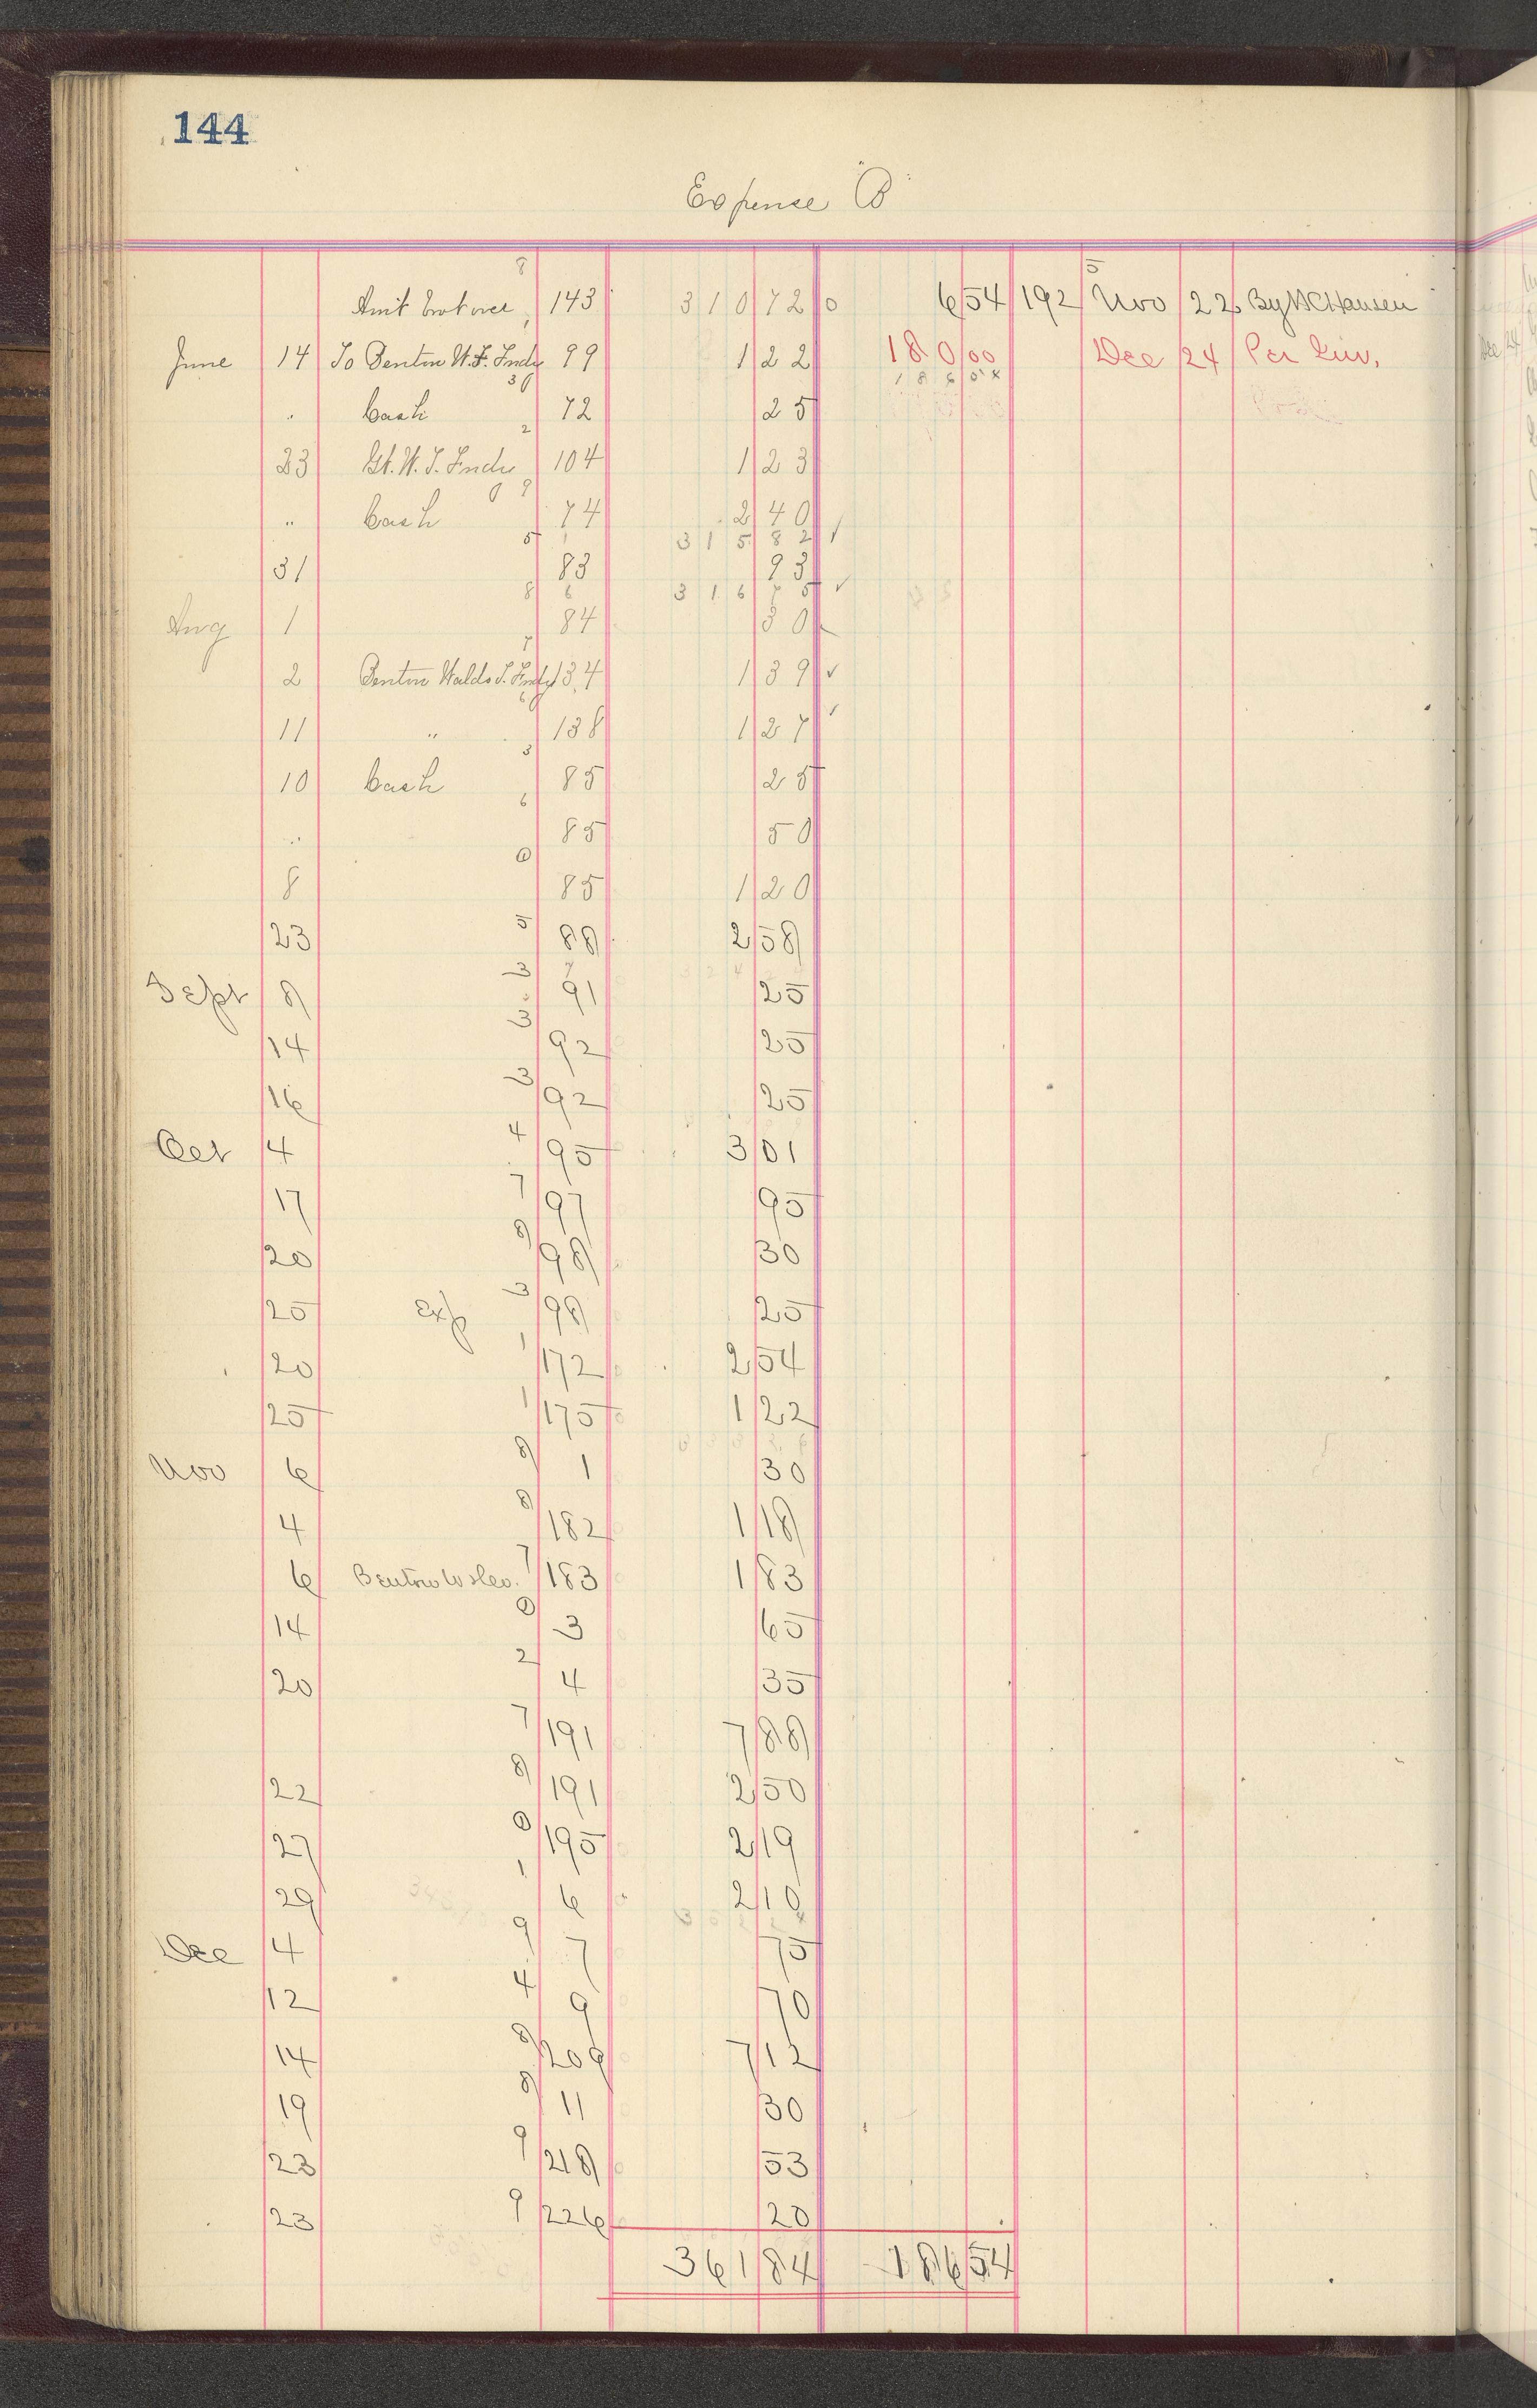 144
Expense "B"
Amt brot over, 143 310 72 6 54 192 Nov 22 By H C Hansen
June 14 To Benton W. F. Indy 99 1 22 180 00 Dec 24 Per Inv.
186 54
" Cash 72 25
23 Gt. W. S. Indy 104 1 23
" Cash 74 2 40
315 82
31 83 93
316 75
Aug 1 84 30
2 Benton Waldo S. Indy 134 1 39
11 " 138 1 27
10 Cash 85 25
" 85 50
8 85 1 20
23 88 2 58
Sept 8 91 25
14 92 25
16 92 25
Oct 4 95 3 01
17 97 95
20 98 30
25 Exp 98 25
20 172 2 54
25 175 1 22
Nov 6 1 30
4 182 1 18
6 183 1 83
14 3 65
20 4 35
191 7 88
22 191 2 50
27 195 2 19
29 6 2 10
Dec 4 7 75
12 9 70
14 209 7 12
19 11 30
23 218 53
23 226 20
361 84 186 54